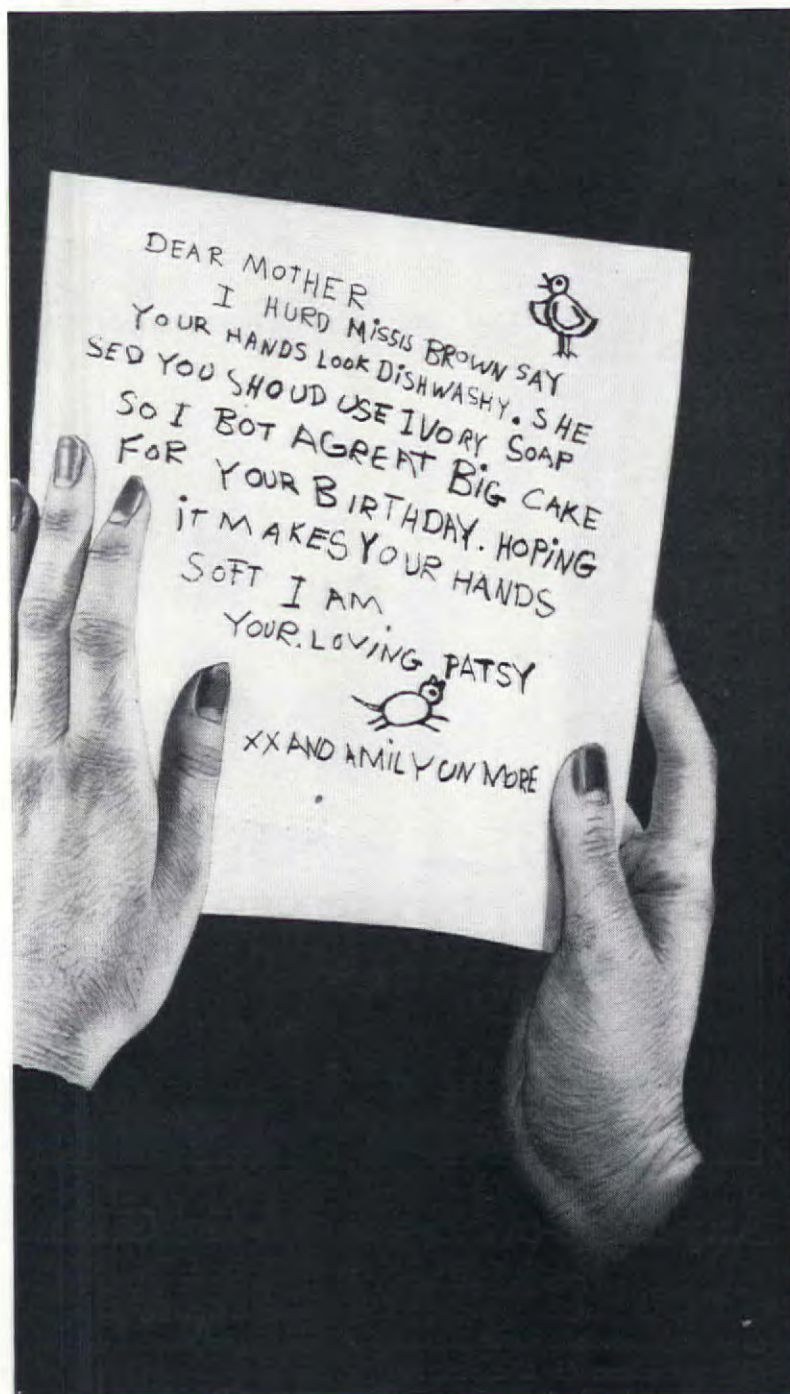 DEAR MOTHER
I HURD MISSIS BROWN SAY
YOUR HANDS LOOK DISHWASHY. SHE
SED YOU SHOUD USE IVORY SOAP
SO I BOT A GREAT BIG CAKE
FOR YOUR BIRTHDAY. HOPING
IT MAKES YOUR HANDS
SOFT I AM.
YOUR. LOVING PATSY
XX AND A MILYUN MORE